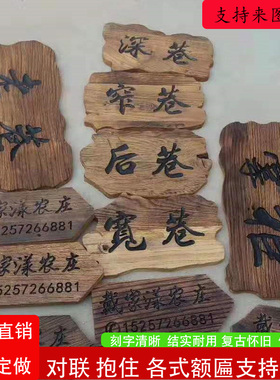 支持来图
深巷
窄巷
后巷
寬巷
家漾农庄
15257266881
戴家漾农庄
15257266881
直销
定做
刻字清晰 结实耐用 复古怀旧
对联 抱住 各式额匾支持